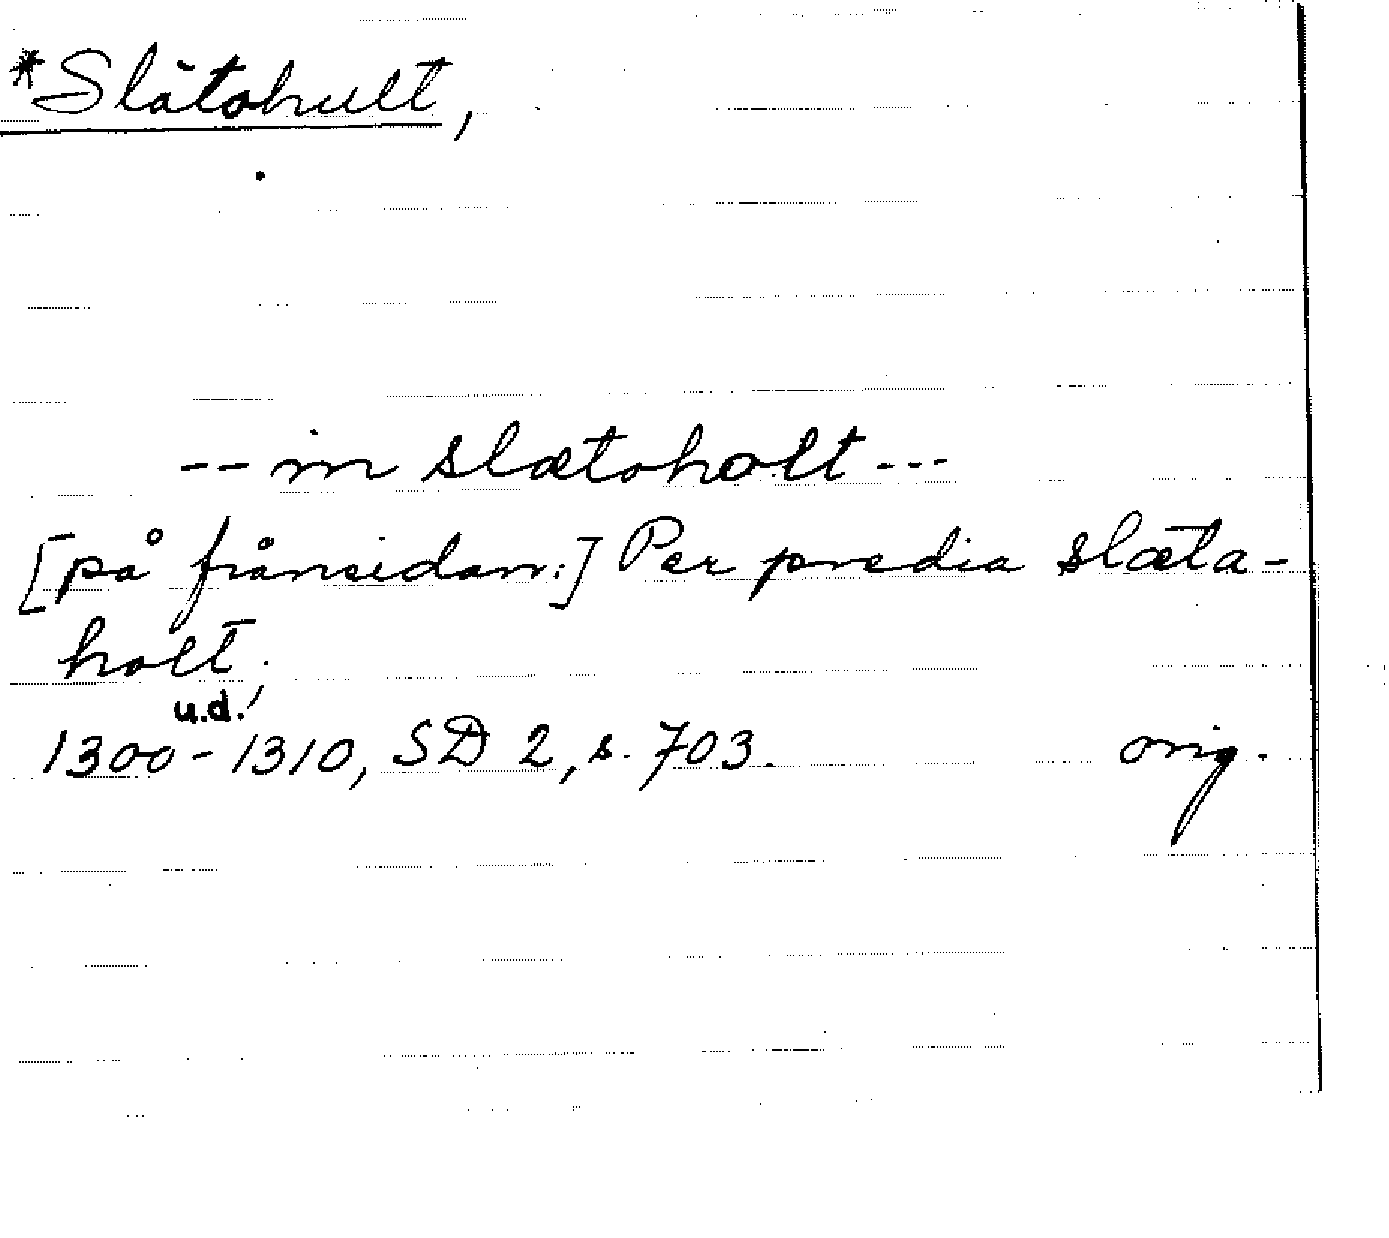 *Slätohult,
-- in slætoholt ---
[på frånsidan:] Per predia slæta-
holt,
u.d.
1300-1310, SD 2, s. 703. orig.